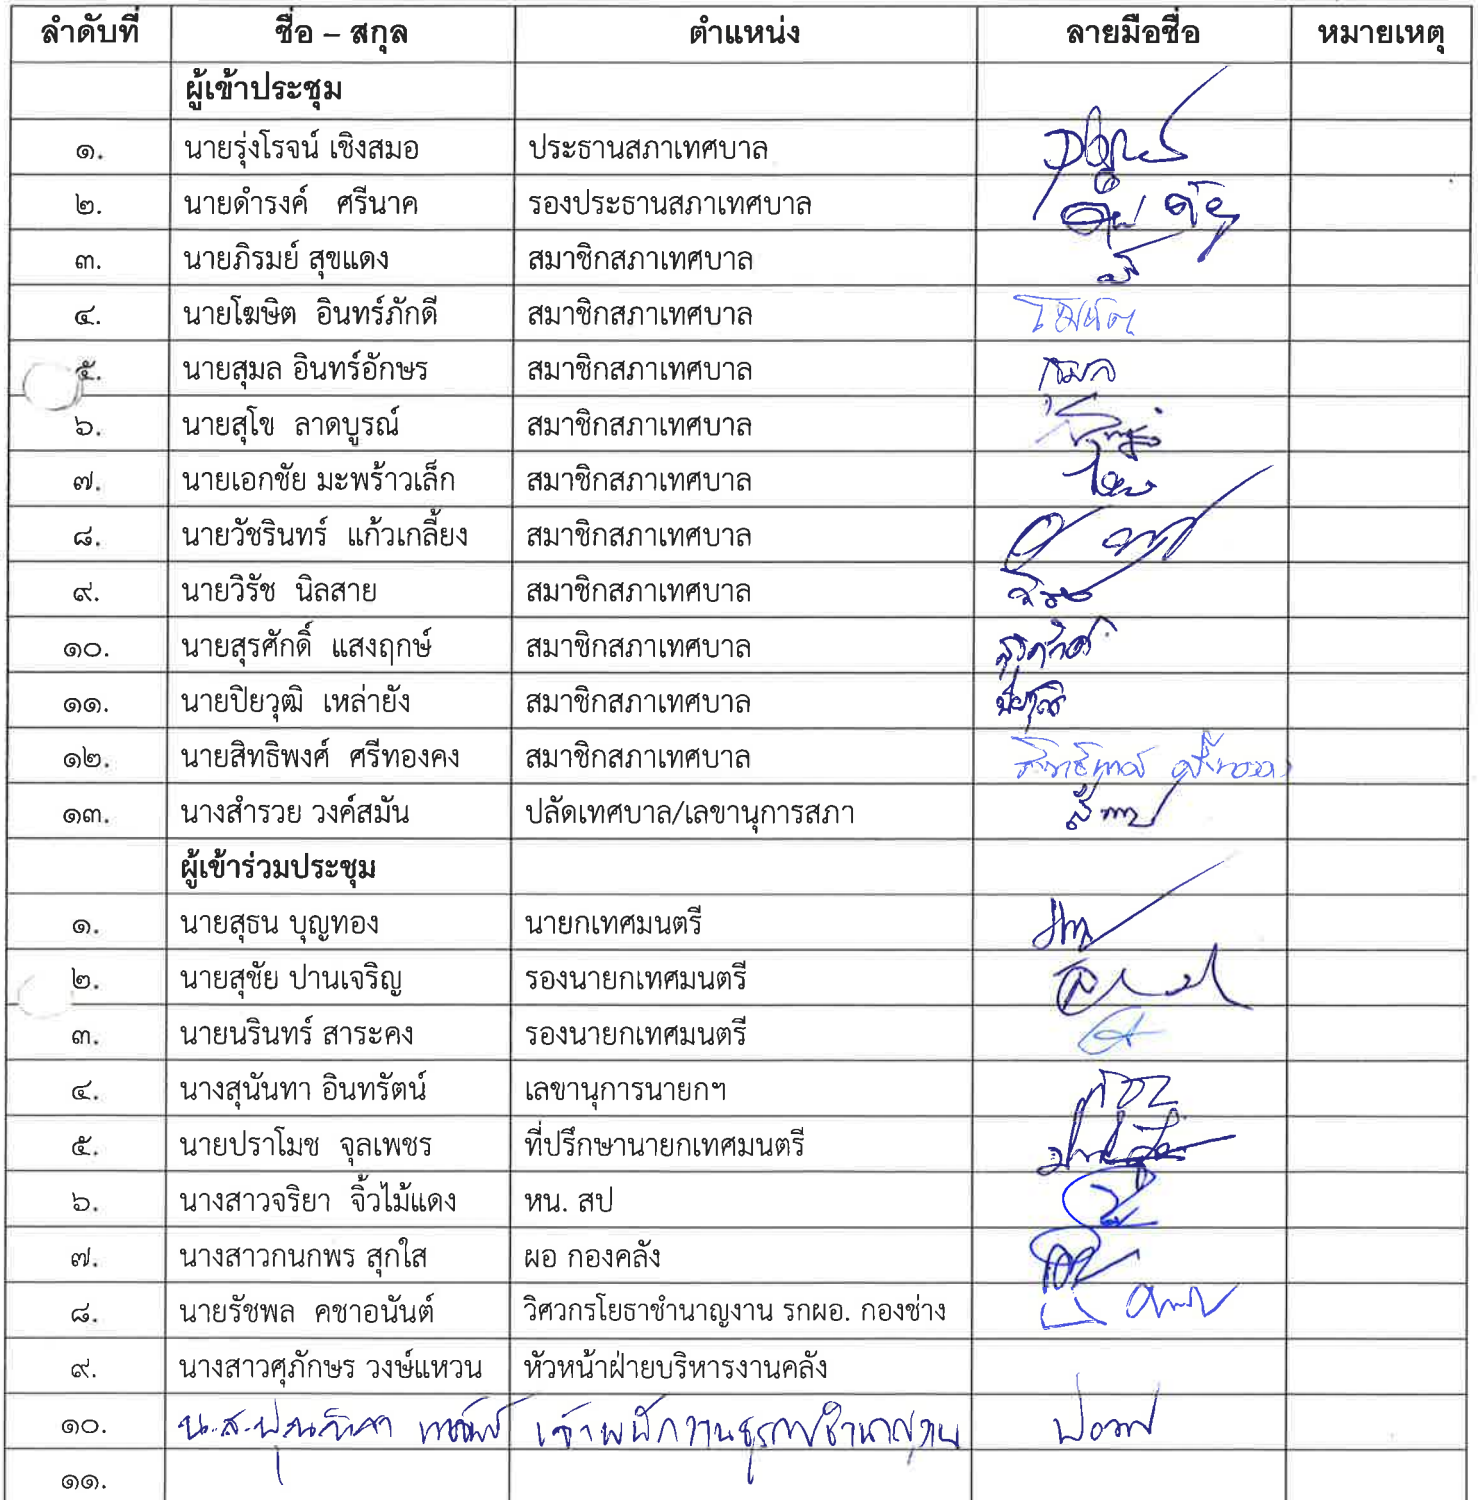 ลำดับที่ ชื่อ – สกุล ตำแหน่ง ลายมือชื่อ หมายเหตุ
ผู้เข้าประชุม
๑. นายรุ่งโรจน์ เชิงสมอ ประธานสภาเทศบาล
๒. นายดำรงค์ ศรีนาค รองประธานสภาเทศบาล
๓. นายภิรมย์ สุขแดง สมาชิกสภาเทศบาล
๔. นายโฆษิต อินทร์ภักดี สมาชิกสภาเทศบาล โฆษิต
๕. นายสุมล อินทร์อักษร สมาชิกสภาเทศบาล สุมล
๖. นายสุโข ลาดบูรณ์ สมาชิกสภาเทศบาล
๗. นายเอกชัย มะพร้าวเล็ก สมาชิกสภาเทศบาล
๘. นายวัชรินทร์ แก้วเกลี้ยง สมาชิกสภาเทศบาล
๙. นายวิรัช นิลสาย สมาชิกสภาเทศบาล
๑๐. นายสุรศักดิ์ แสงฤกษ์ สมาชิกสภาเทศบาล สุรศักดิ์
๑๑. นายปิยวุฒิ เหล่ายัง สมาชิกสภาเทศบาล ปิยวุฒิ
๑๒. นายสิทธิพงศ์ ศรีทองคง สมาชิกสภาเทศบาล สิทธิพงศ์ ศรีทองคง
๑๓. นางสำรวย วงค์สมัน ปลัดเทศบาล/เลขานุการสภา
ผู้เข้าร่วมประชุม
๑. นายสุธน บุญทอง นายกเทศมนตรี
๒. นายสุชัย ปานเจริญ รองนายกเทศมนตรี
๓. นายนรินทร์ สาระคง รองนายกเทศมนตรี
๔. นางสุนันทา อินทรัตน์ เลขานุการนายกฯ
๕. นายปราโมช จุลเพชร ที่ปรึกษานายกเทศมนตรี
๖. นางสาวจริยา จิ้วไม้แดง หน. สป
๗. นางสาวกนกพร สุกใส ผอ กองคลัง
๘. นายรัชพล คชาอนันต์ วิศวกรโยธาชำนาญงาน รกผอ. กองช่าง
๙. นางสาวศุภักษร วงษ์แหวน หัวหน้าฝ่ายบริหารงานคลัง
๑๐. น.ส. เจ้าพนักงานธุรการชำนาญงาน
๑๑.